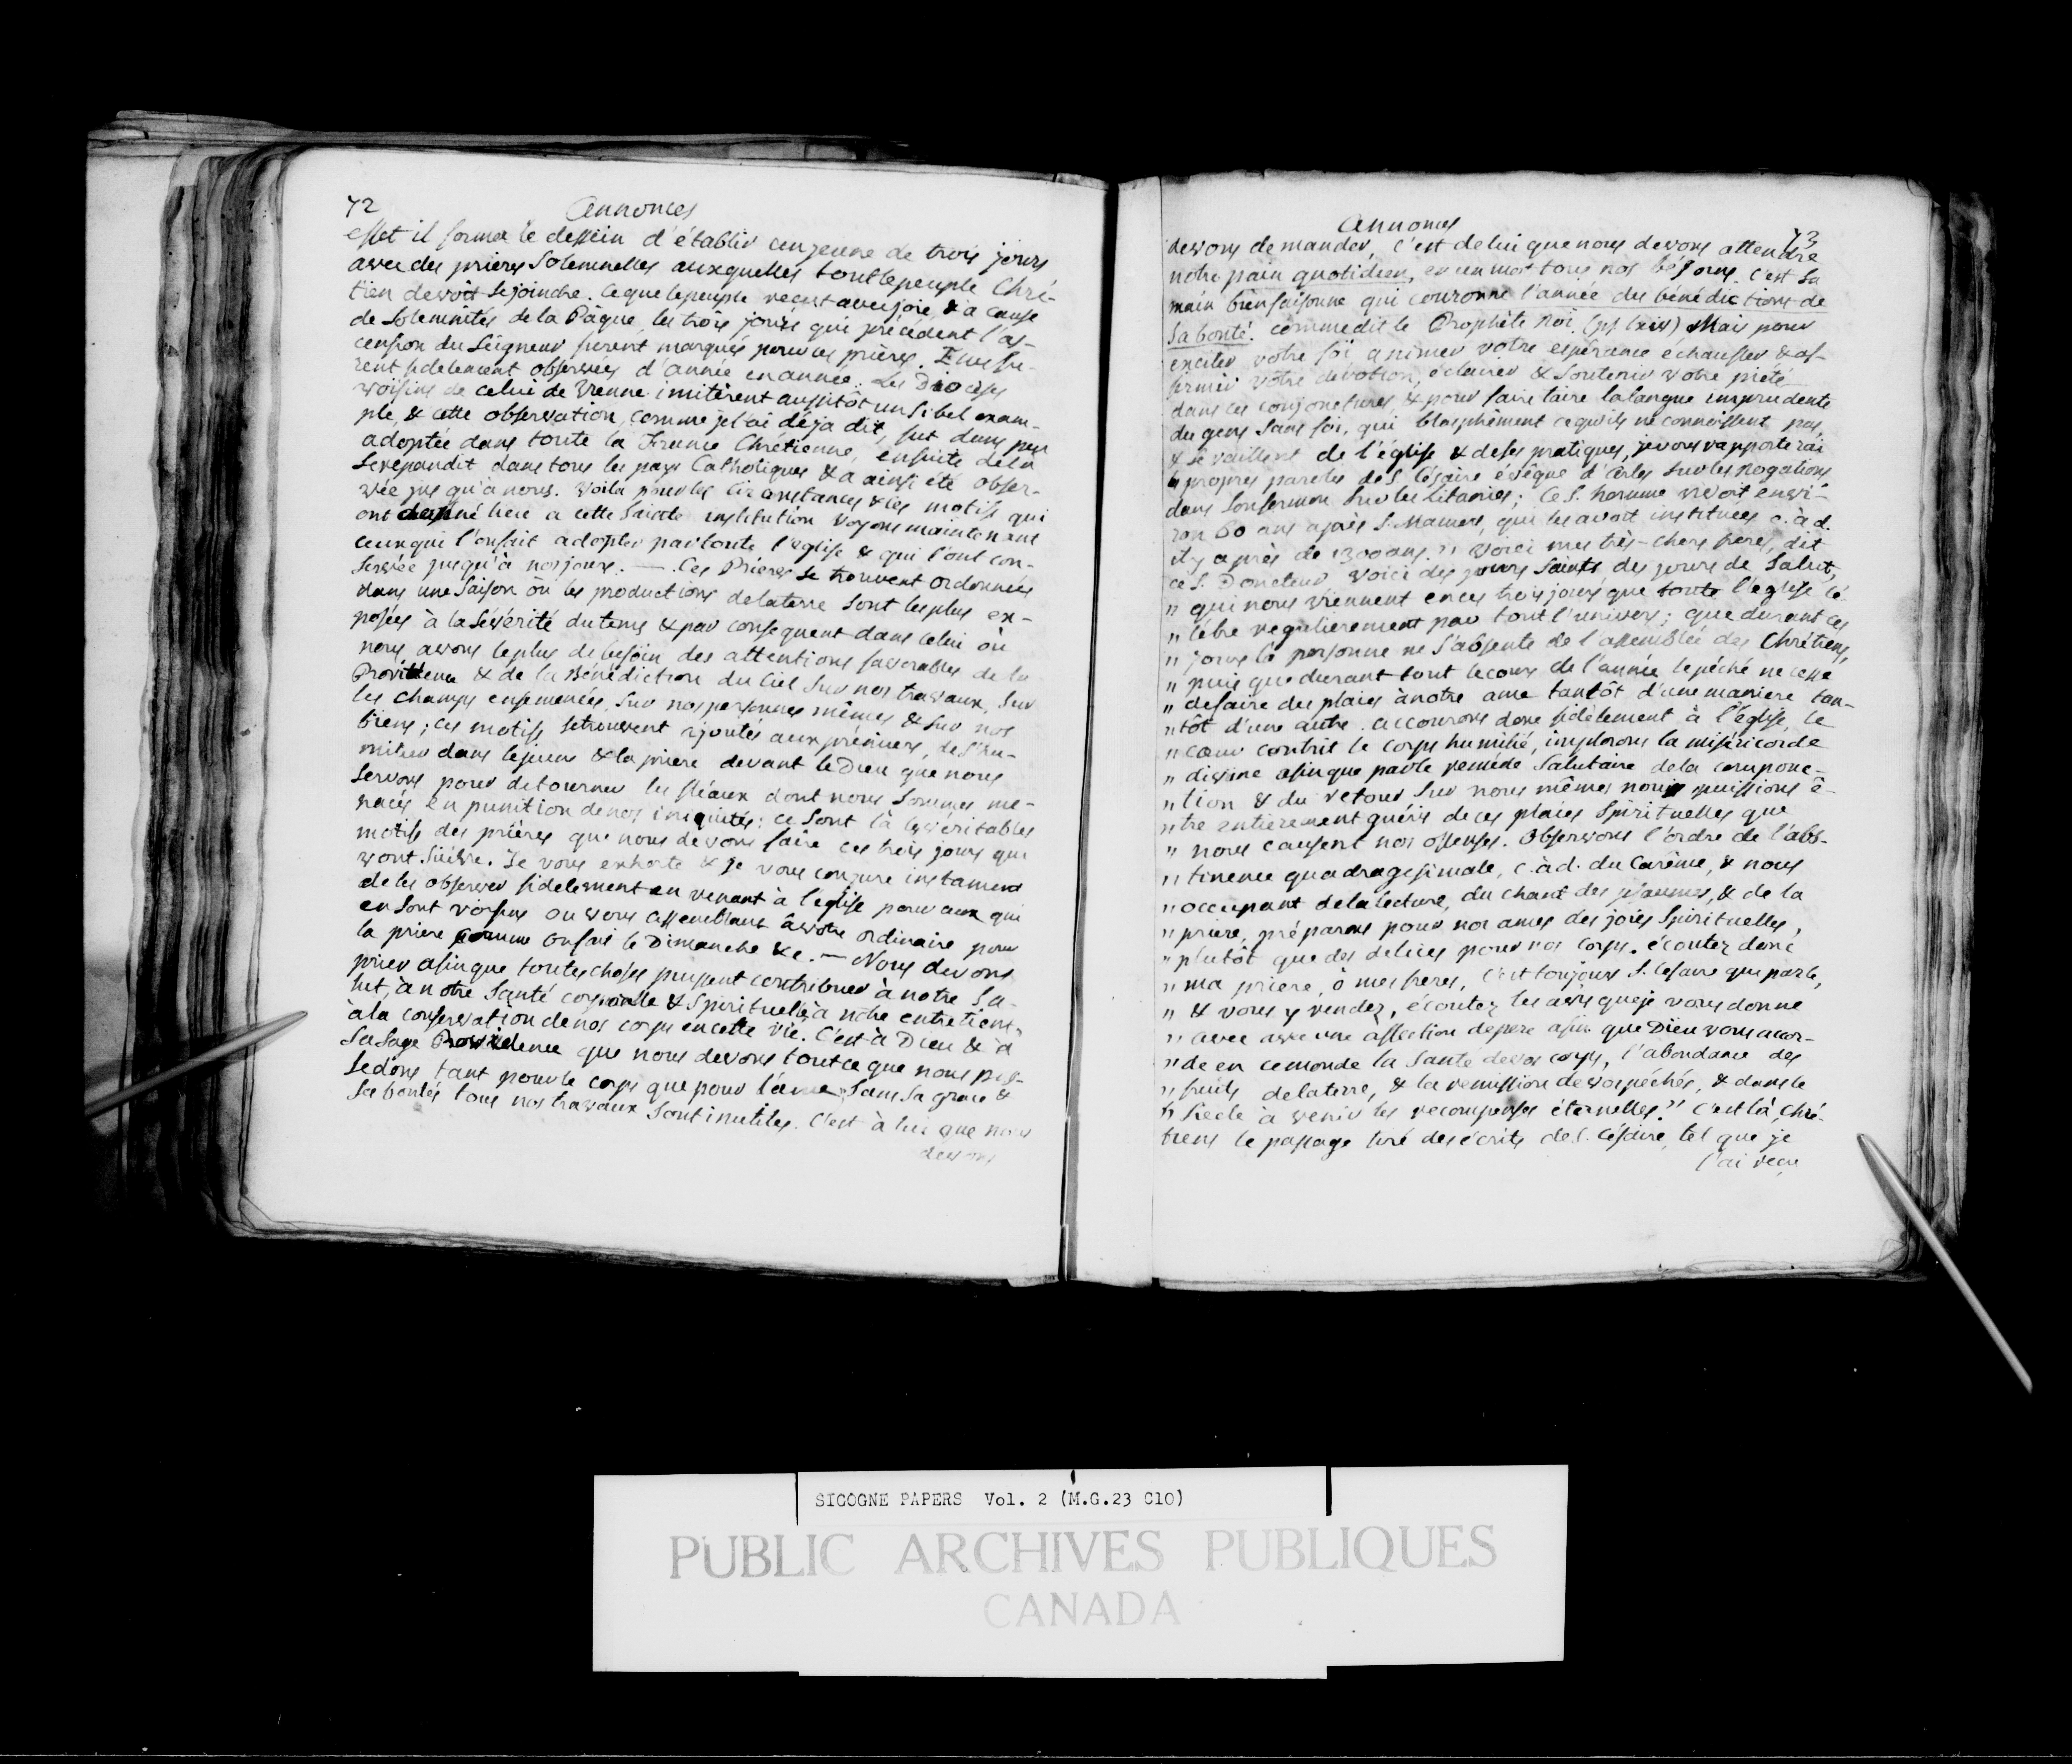 72 Annonces
effet il forma le dessein d'établir un jeune de trois jours
avec des prieres Solemnelles auxquelles tout le peuple Chré-
tien devoit se joindre. Ce que le peuple reçut avec joie, & à cause
de Solemnités de la Pâque, les trois jours qui précédent l'as-
cension du Seigneur furent marqués pour ces prières. Elles fu-
rent fidelement observées d'année en année. Les Dioceses
voisins de celui de Vienne imitèrent aussitôt un si bel exam-
ple, & cette observation, comme je l'ai déja dit, fut dans peu
adoptée dans toute la France Chrétienne, ensuite de là
se répandit dans tous les pays Catholiques & a ainsi été obser-
vée jus qu'à nous. Voila pour les circonstances & les motifs qui
ont donné lieu a cette Sainte institution voyons maintenant
ceux qui l'on fait adopter par toute l'église & qui l'ont con-
servée jusqu'à nos jours. — Ces Prieres se trouvent ordonnées
dans une Saison où les productions de la terre sont les plus ex-
posées à la Sévérité du tems & par consequent dans celui où
nous avons le plus de besoin des attentions favorables de la
Providence & de la Bénédiction du Ciel sur nos travaux, sur
les champs ensemencés, sur nos personnes mêmes & sur nos
biens; ces motifs se trouvent ajoutés aux prémiers, de s'hu-
milier dans le jeune & la priere devant le Dieu que nous
servons pour detourner les fléaux dont nous sommes me-
nacés en punition de nos iniquités: ce sont là les véritables
motifs des prières que nous devons faire ces trois jours qui
vont suivre. Je vous exhorte & je vous conjure instament
de les observer fidelement en venant à l'eglise pour ceux qui
en sont voisins ou vous assemblant à votre ordinaire pour
la priere comme on fait le Dimanche &c. — Nous devons
prier afin que toutes choses puissent contribuer à notre Sa-
lut, à notre Santé corporelle & Spirituelle à notre entretient,
à la conservation de nos corps en cette vie. C'est à Dieu & à
sa sage Providence que nous devons tout ce que nous pos-
sedons tant pour le corps que pour l'ame. Sans sa grace &
sa bontés tous nos travaux sont inutiles. C'est à lui que nous
devons
Annonces 73
devons demander, c'est de lui que nous devons attendre
notre pain quotidien, en un mot tous nos bésoins. C'est sa
main bienfaisanne qui couronne l'année des bénédictions de
sa bonté. comme dit le Prophète Roi. (ps lxiv) Mais pour
exciter votre foi, animer votre espérance échauffer & af-
fermir vôtre dévotion, éclairer & soutenir votre pieté
dans ces conjonctures & pour faire taire la langue imprudente
des gens sans foi, qui blasphêment ce qu'ils ne connoissent pas,
& se raillent de l'église & de ses pratiques, je vous rapporterai
" propres paroles de S. Césaire évêque d'Arles sur les Rogations
dans son sermon sur les Litanies; Ce S. homme vivoit envi-
ron 60 ans après S. Mamers, qui les avoit instituées c. à d.
il y a près de 1300 ans. " Voici mes très-chers freres, dit
ce S. Docteur voici des jours saints des jours de Salut,
" qui nous viennent en ces trois jours que toute l'église cé-
" lébre regulierement par tout l'univers; que durant ces
" jours là personne ne s'absente de l'assemblée des Chrétiens,
" puis que durant tout le cours de l'année le péché ne cesse
" de faire des plaies à notre ame tantôt d'une maniere tan-
" tôt d'une autre. accourons donc fidèlement à l'église, le
" cœur contrit le corps humilié, implorons la miséricorde
" divine afin que par le remède Salutaire de la componc-
" tion & du retour sur nous mêmes nous puissions ê-
" tre entierement guéris de ces plaies Spirituelles que
" nous causent nos offenses. Observons l'ordre de l'abs-
" tinence quadragesimale, c. à d. du Carême, & nous
" occupant de la lecture, du chant des psaumes, & de la
" priere, préparons pour nos ames des joies Spirituelles,
" plutôt que des delices pour nos corps. écoutez donc
" ma priere, ô mes freres, c'est toujours S. Césaire qui parle,
" & vous y rendez, écoutez les avis que je vous donne
" avec avec une affection de pere afin que Dieu vous accor-
" de en ce monde la Santé de vos corps, l'abondance des
" fruits de la terre, & la remission de vos péchés, & dans le
" Siecle à venir les recompenses éternelles." C'est là, Chré-
tiens le passage tiré des écrits de S. Césaire, tel que je
l'ai reçu
SICOGNE PAPERS Vol. 2 (M.G.23 C10)
PUBLIC ARCHIVES PUBLIQUES
CANADA